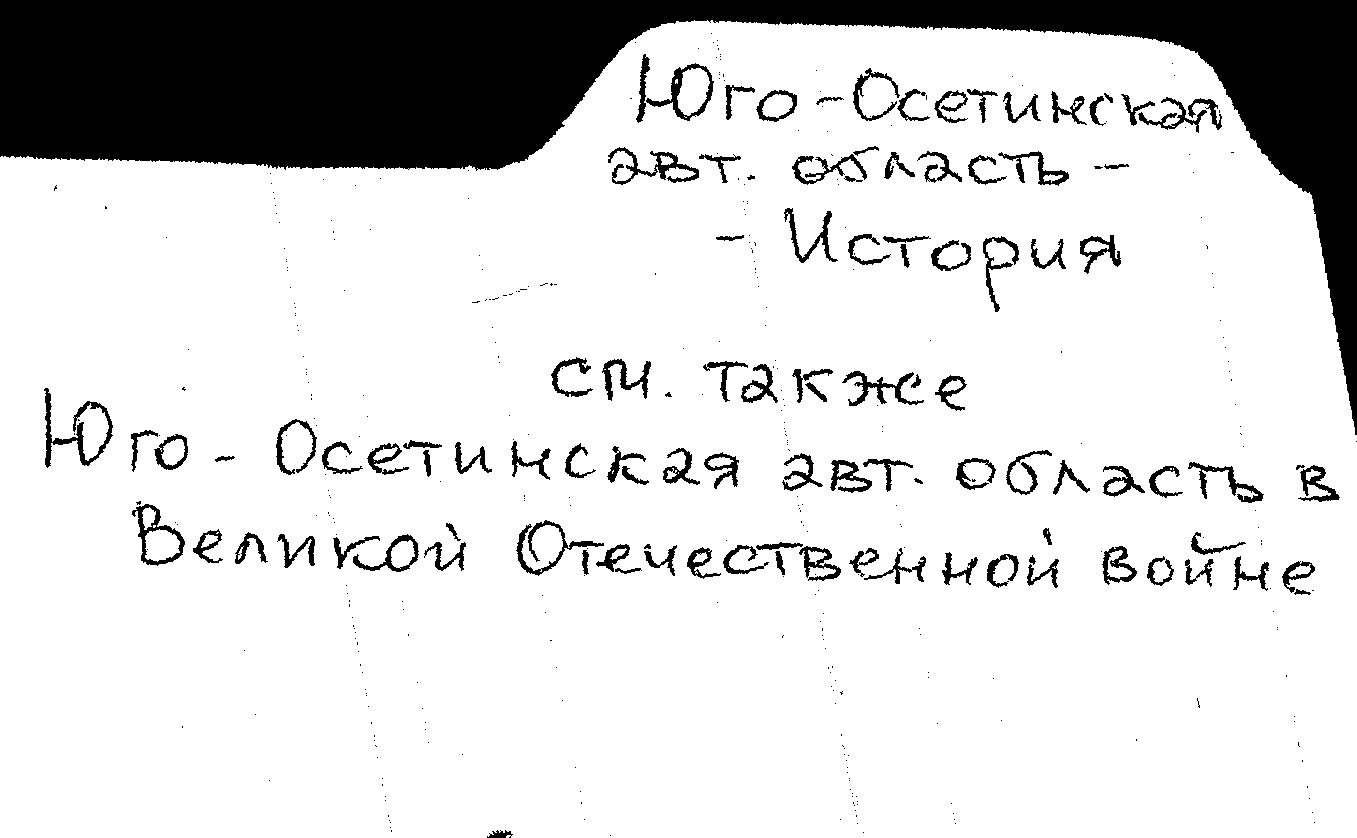 Юго-Осетинская
авт. область -
- История
см. также
Юго-Осетинская авт. область в
Великой Отечественной войне